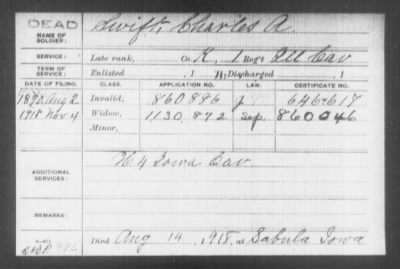 DEAD
NAME OF SOLDIER: Swift, Charles A.
SERVICE: Late rank, Co. K, 1 Reg't Ill Cav
TERM OF SERVICE: Enlisted , 1 Discharged , 1
DATE OF FILING. CLASS. APPLICATION NO. LAW. CERTIFICATE NO.
1890 Aug 2 Invalid, 860886 J 646617
1918 Nov 4 Widow, 1130,872 Sep. 860046
Minor,
ADDITIONAL SERVICES: H 4 Iowa Cav.
REMARKS:
Died Aug 14, 1918, at Sabula Iowa